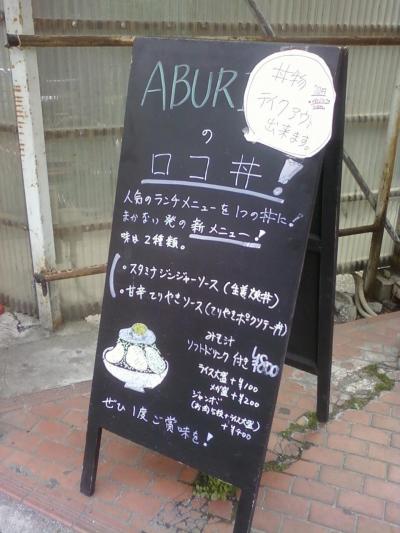 ABURI
丼物
テイクアウト
出来ます。
の
ロコ丼!
人気のランチメニューを1つの丼に!
まかない発の新メニュー!
味は2種類。
・スタミナジンジャーソース(生姜焼丼)
・甘辛てりやきソース(てりやきポークソテー丼)
みそ汁
ソフトドリンク付き ¥800
ライス大盛 +¥100
メガ盛 +¥200
ジャンボ
(お肉5枚+ライス大盛)
+¥400
ぜひ1度ご賞味を!